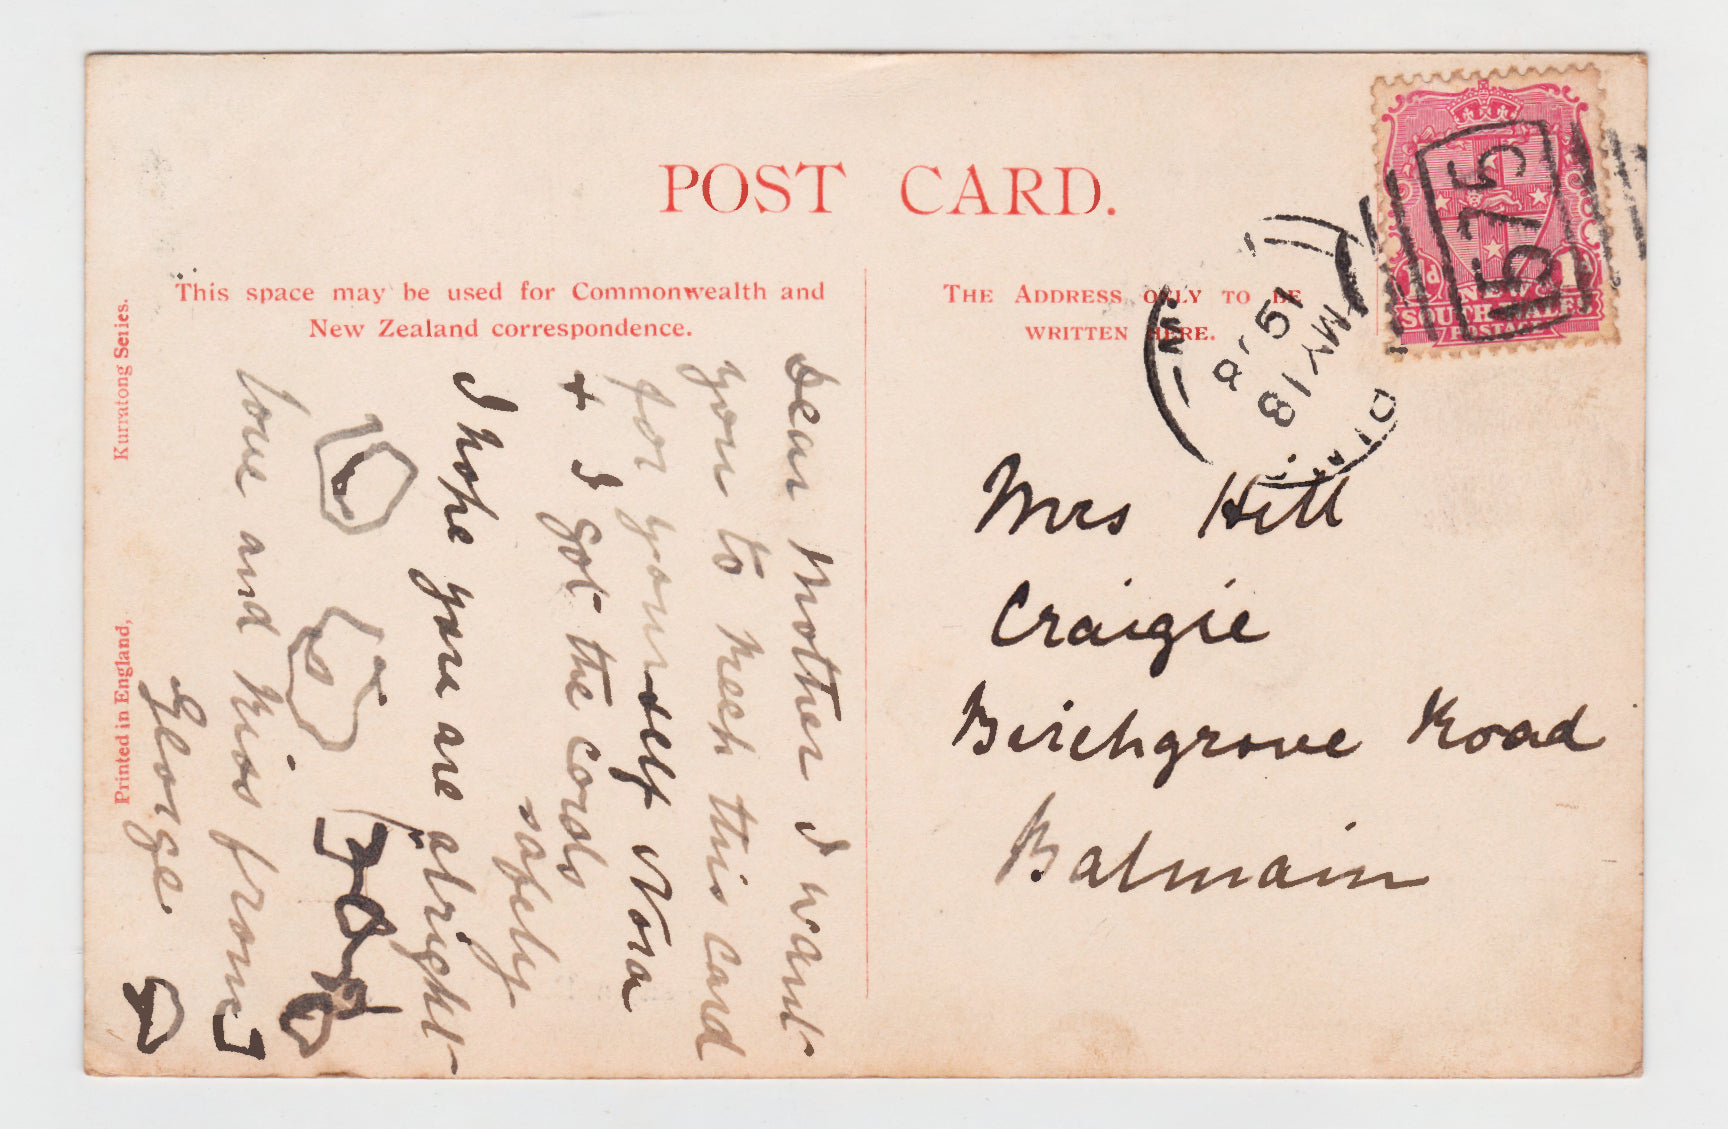 POST CARD.
This space may be used for Commonwealth and
New Zealand correspondence.
THE ADDRESS ONLY TO BE
WRITTEN HERE.
Kurratong Series.
Printed in England,
NEW
SOUTH WALES
POSTAGE
1d
1575
MY 18
Dear Mother I want
you to keep this card
for yourself Nora
& I got the cards
safely
I hope you are alright
love and kiss from
George
Mrs Hill
Craigie
Birchgrove Road
Balmain